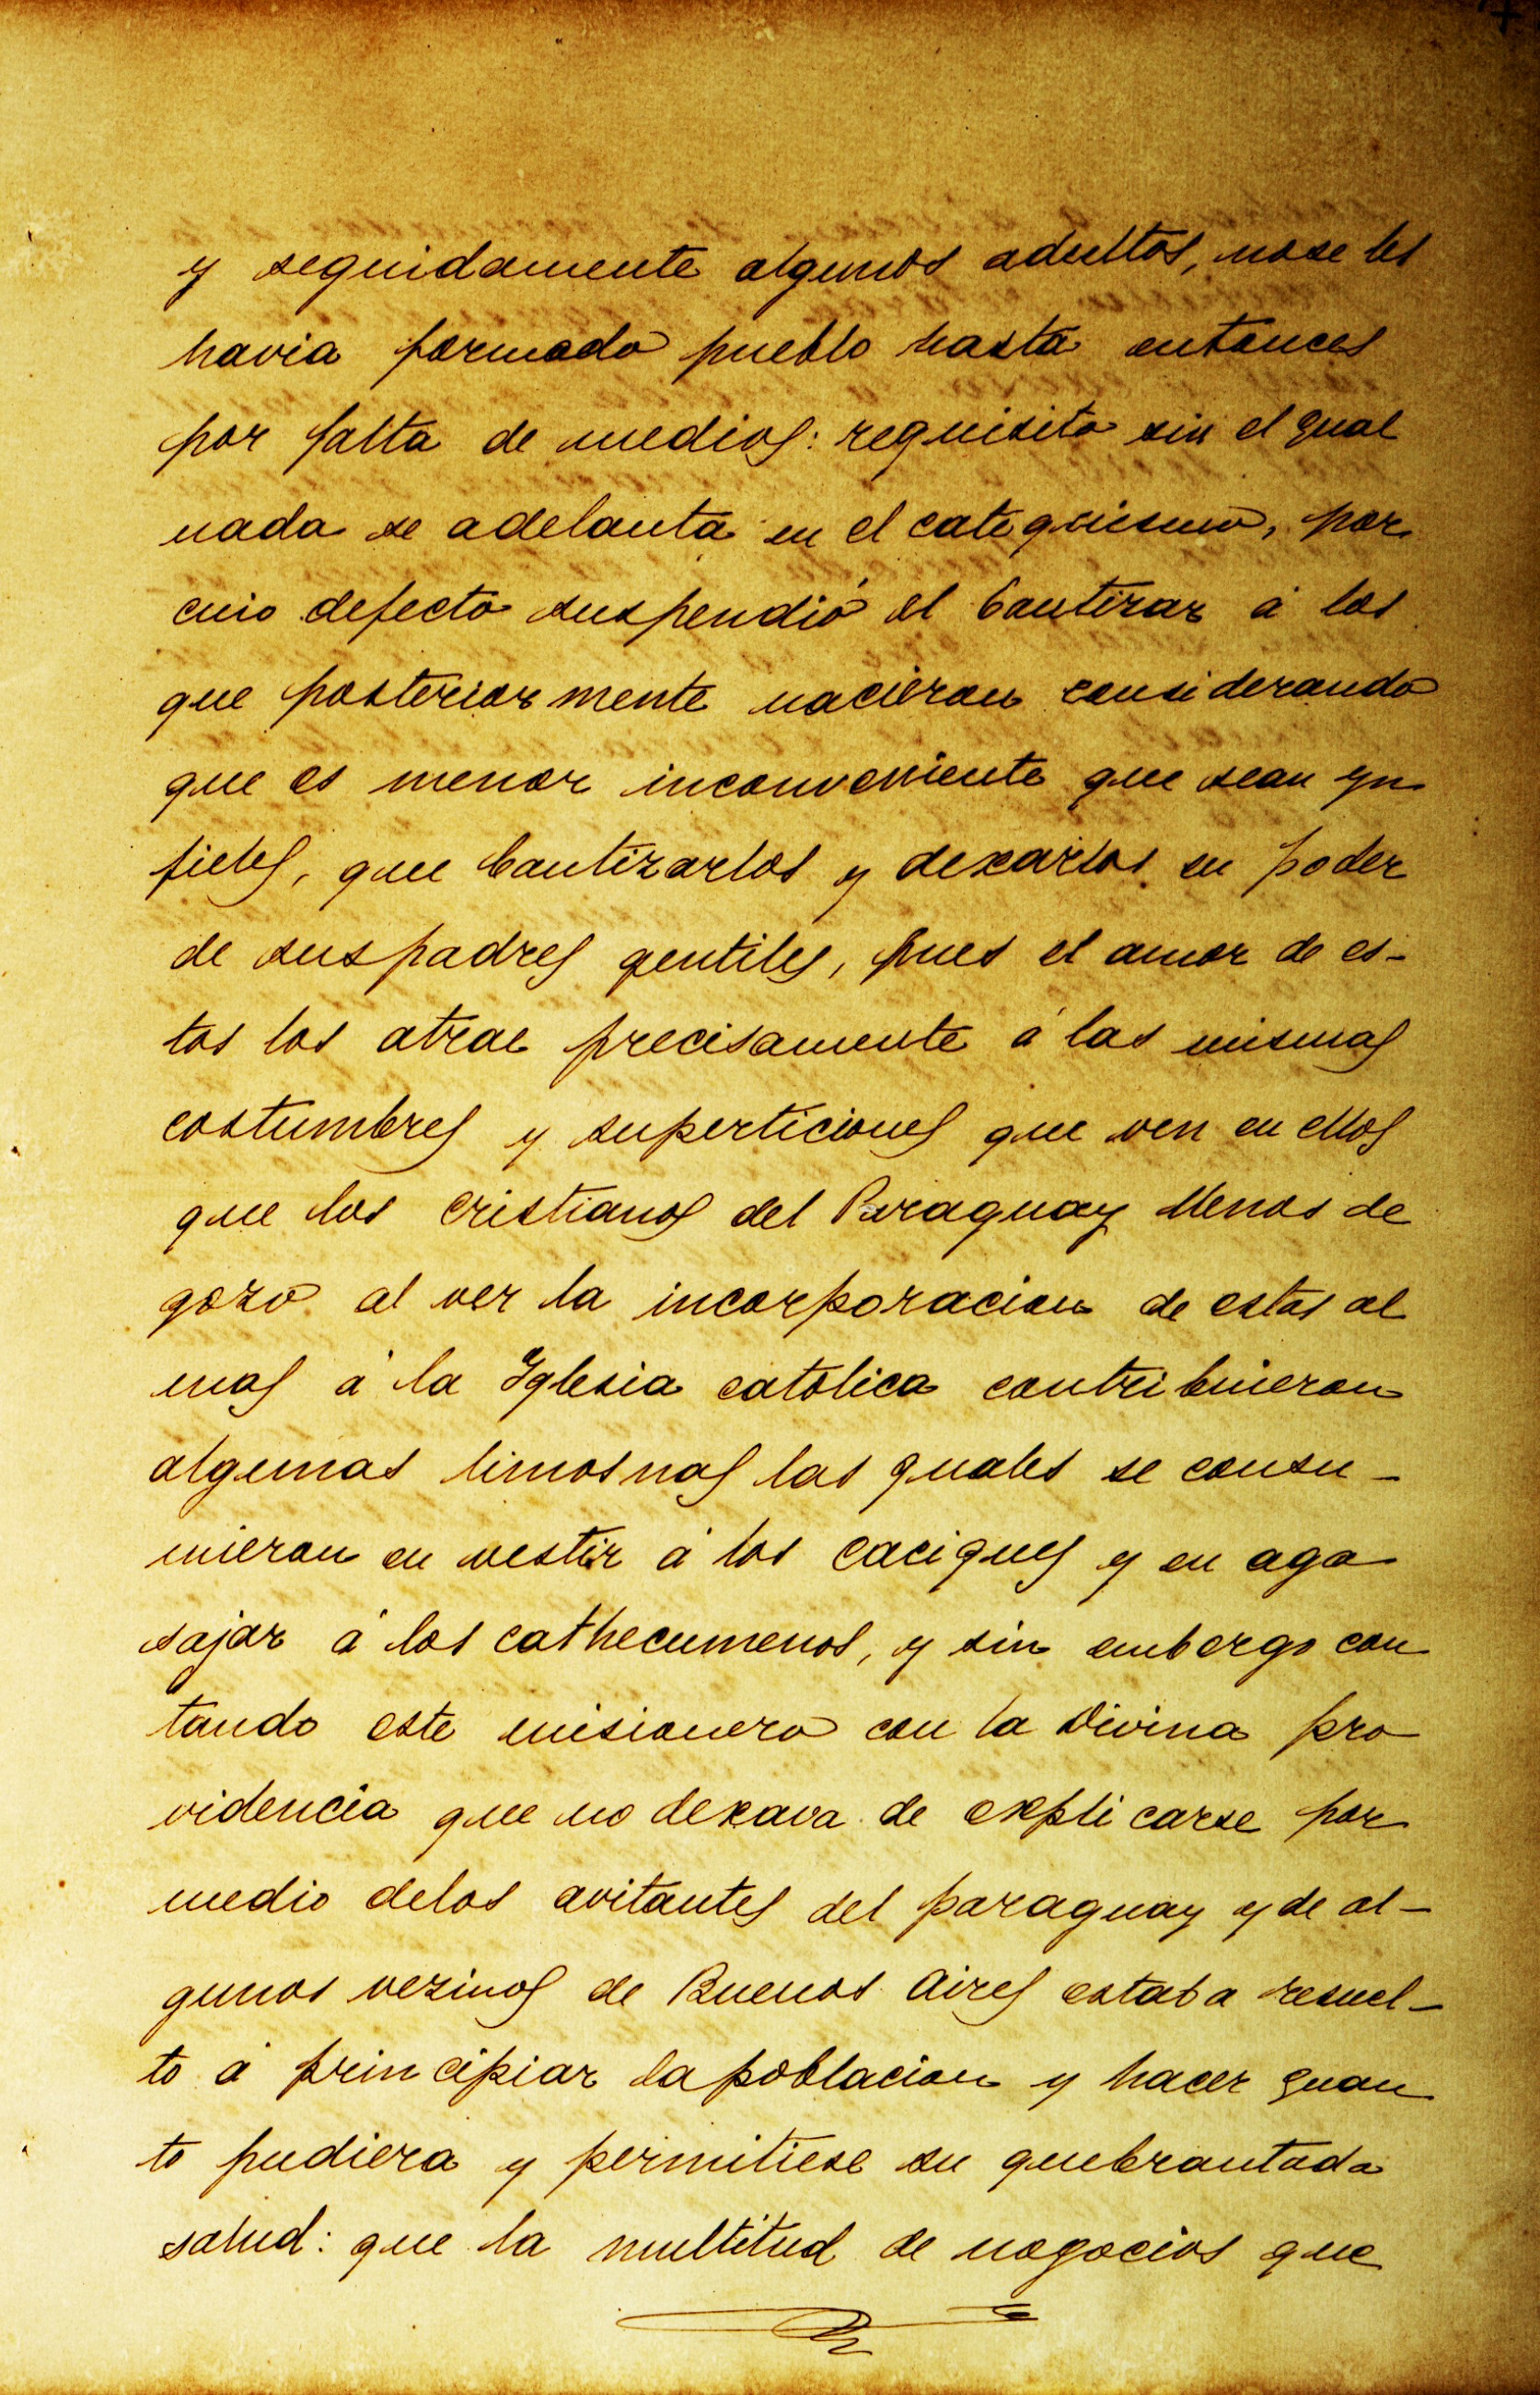 y seguidamente algunos adultos, nose les
havia formado pueblo hasta entonces
por falta de medios: requisito sin el qual
nada se adelanta en el categuismo, por
cuio defecto suspendió el bautizar á los
que posteriormente nacieron considerando
que es menor inconveniente que sean yn
fieles, que bautizarlos y dexarlos en poder
de suspadres gentiles, pues el amor de es-
tos los atrae precisamente á las mismas
costumbres y superticiones que ven en ellos
que los cristianos del Paraguay llenos de
gozo al ver la incorporacion de estas al
mas á la Iglesia catolica contribuieron
algunas limosnas las quales se consu-
mieron en vestir á los caciques y en aga
sajar á los cathecumenos, y sin embergo con
tando este misionero con la Divina pro
videncia que no dexava de explicarse por
medio delos avitantes del paraguay y de al-
gunos vezinos de Buenos Aires estaba resuel-
to á principiar lapoblacion y hacer quan
to pudiera y permitiese su quebrantada
salud: que la multitud de nogocios que